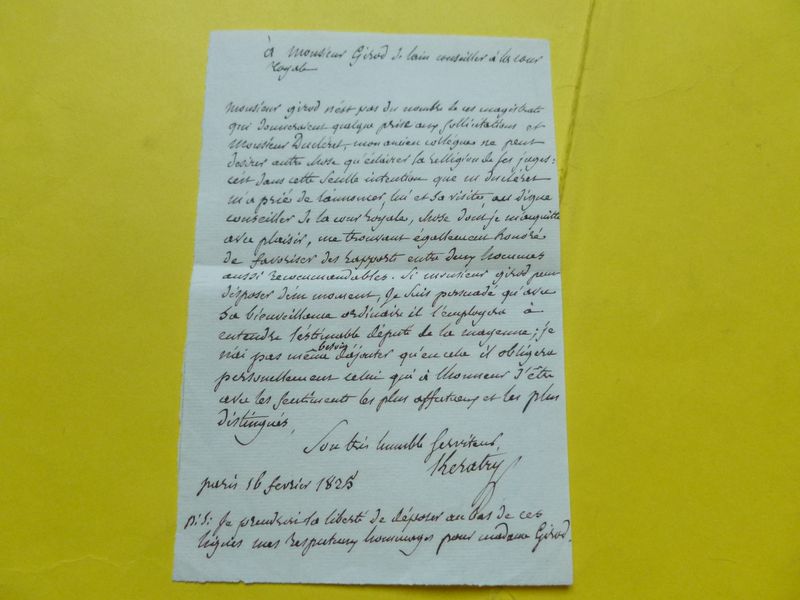 à Monsieur Girod de lain conseiller à la cour
royale
Monsieur girod n'est pas du nombre de ces magistrats
qui donneraient quelque prise aux sollicitations et
Monsieur Ducléret, mon ancien collègue ne peut
desirer autre chose qu'éclairer la relligion de ses juges:
c'est dans cette seulle intention que m ducléret
m'a prié de l'annoncer, lui et sa visite, au digne
conseiller de la cour royale, chose dont je m'acquitte
avec plaisir, me trouvant égallement honoré
de favoriser des rapports entre deux hommes
aussi recommandables. Si monsieur girod peut
disposer d'un moment, Je suis persuadé qu'avec
sa bienveillance ordinaire il l'employera à
entendre l'estimable député de la mayenne; je
n'ai pas même besoin d'ajouter qu'en cela il obligera
personellement celui qui à l'honneur d'être
avec les sentiments les plus affectueux et les plus
distingués,
Son très humble Serviteur
Keratry
paris 16 fevrier 1825
P.S. Je prendrai la liberté de déposer au bas de ces
lignes mes respectueux hommages pour madame Girod.